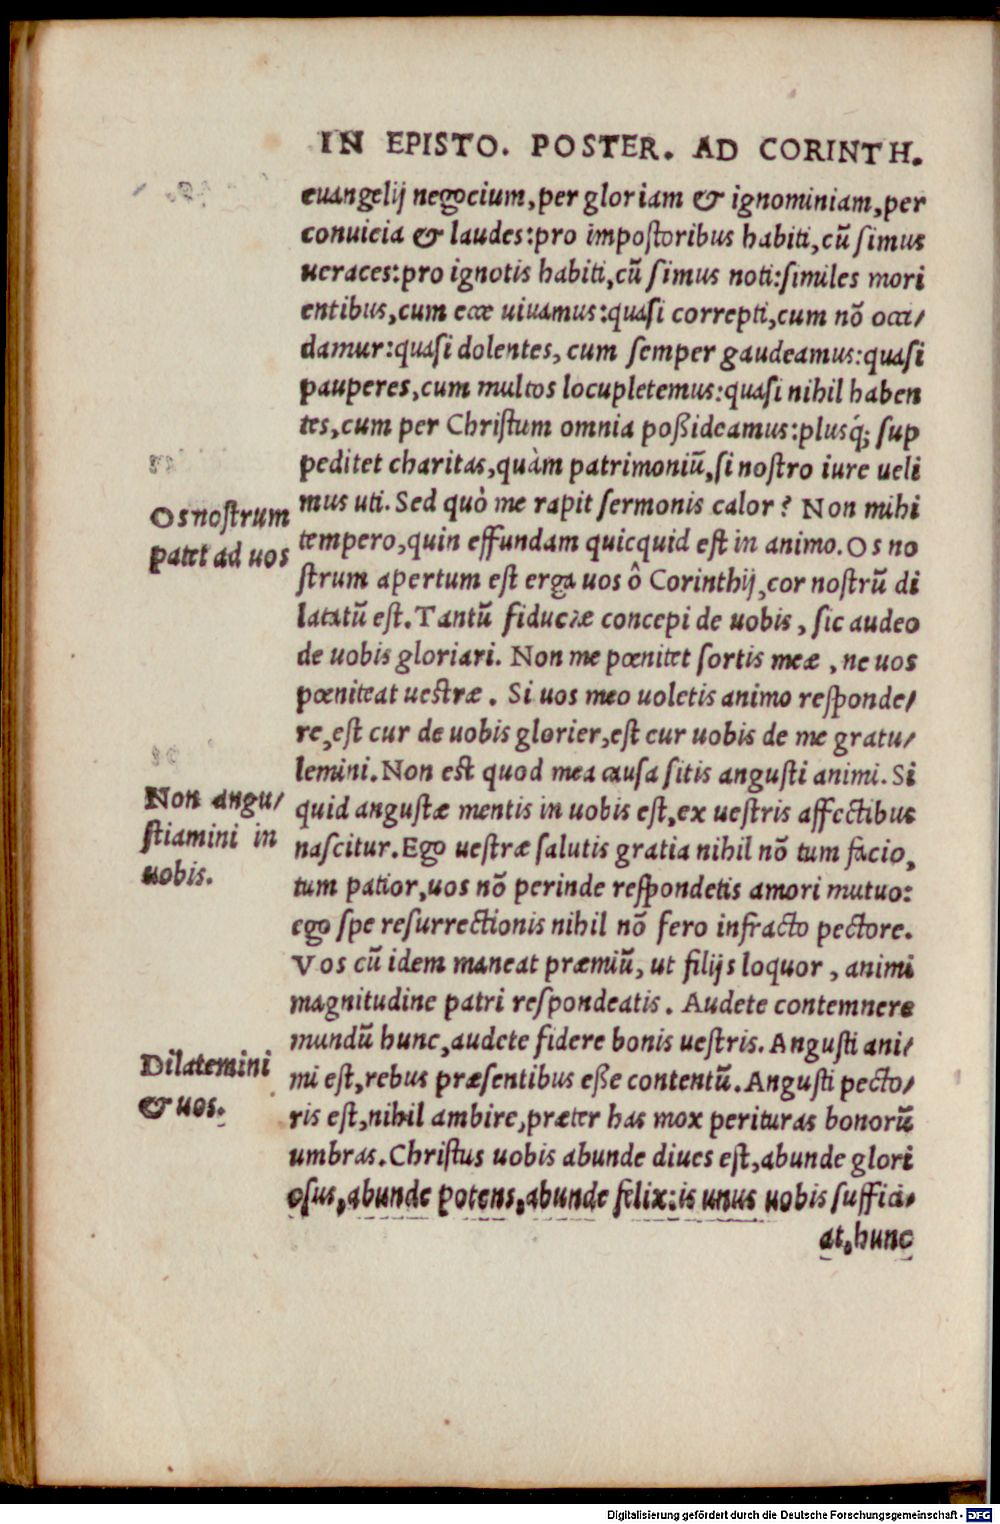 IN EPISTO. POSTER. AD CORINTH.
euangelij negocium, per gloriam & ignominiam, per
conuicia & laudes: pro impostoribus habiti, cũ simus
ueraces: pro ignotis habiti, cũ simus noti: similes mori
entibus, cum ecce uiuamus: quasi correpti, cum nõ occi/
damur: quasi dolentes, cum semper gaudeamus: quasi
pauperes, cum multos locupletemus: quasi nihil haben
tes, cum per Christum omnia poßideamus: plusq́; sup
peditet charitas, quàm patrimoniũ, si nostro iure ueli
mus uti. Sed quò me rapit sermonis calor? Non mihi
tempero, quin effundam quicquid est in animo. Os no
strum apertum est erga uos ô Corinthij, cor nostrũ di
latatũ est. Tantũ fiduciæ concepi de uobis, sic audeo
de uobis gloriari. Non me pœnitet sortis meæ, ne uos
pœniteat uestræ. Si uos meo uoletis animo responde/
re, est cur de uobis glorier, est cur uobis de me gratu/
lemini. Non est quod mea causa sitis angusti animi. Si
quid angustæ mentis in uobis est, ex uestris affectibus
nascitur. Ego uestræ salutis gratia nihil nõ tum facio,
tum patior, uos nõ perinde respondetis amori mutuo:
ego spe resurrectionis nihil nõ fero infracto pectore.
Vos cũ idem maneat præmiũ, ut filijs loquor, animi
magnitudine patri respondeatis. Audete contemnere
mundũ hunc, audete fidere bonis uestris. Angusti ani/
mi est, rebus præsentibus eße contentũ. Angusti pecto/
ris est, nihil ambire, præter has mox perituras bonorũ
umbras. Christus uobis abunde diues est, abunde glori
osus, abunde potens, abunde felix: is unus uobis suffici/
at, hunc
Os nostrum
patet ad uos
Non angu/
stiamini in
uobis.
Dilatemini
& uos.
Digitalisierung gefördert durch die Deutsche Forschungsgemeinschaft - DFG